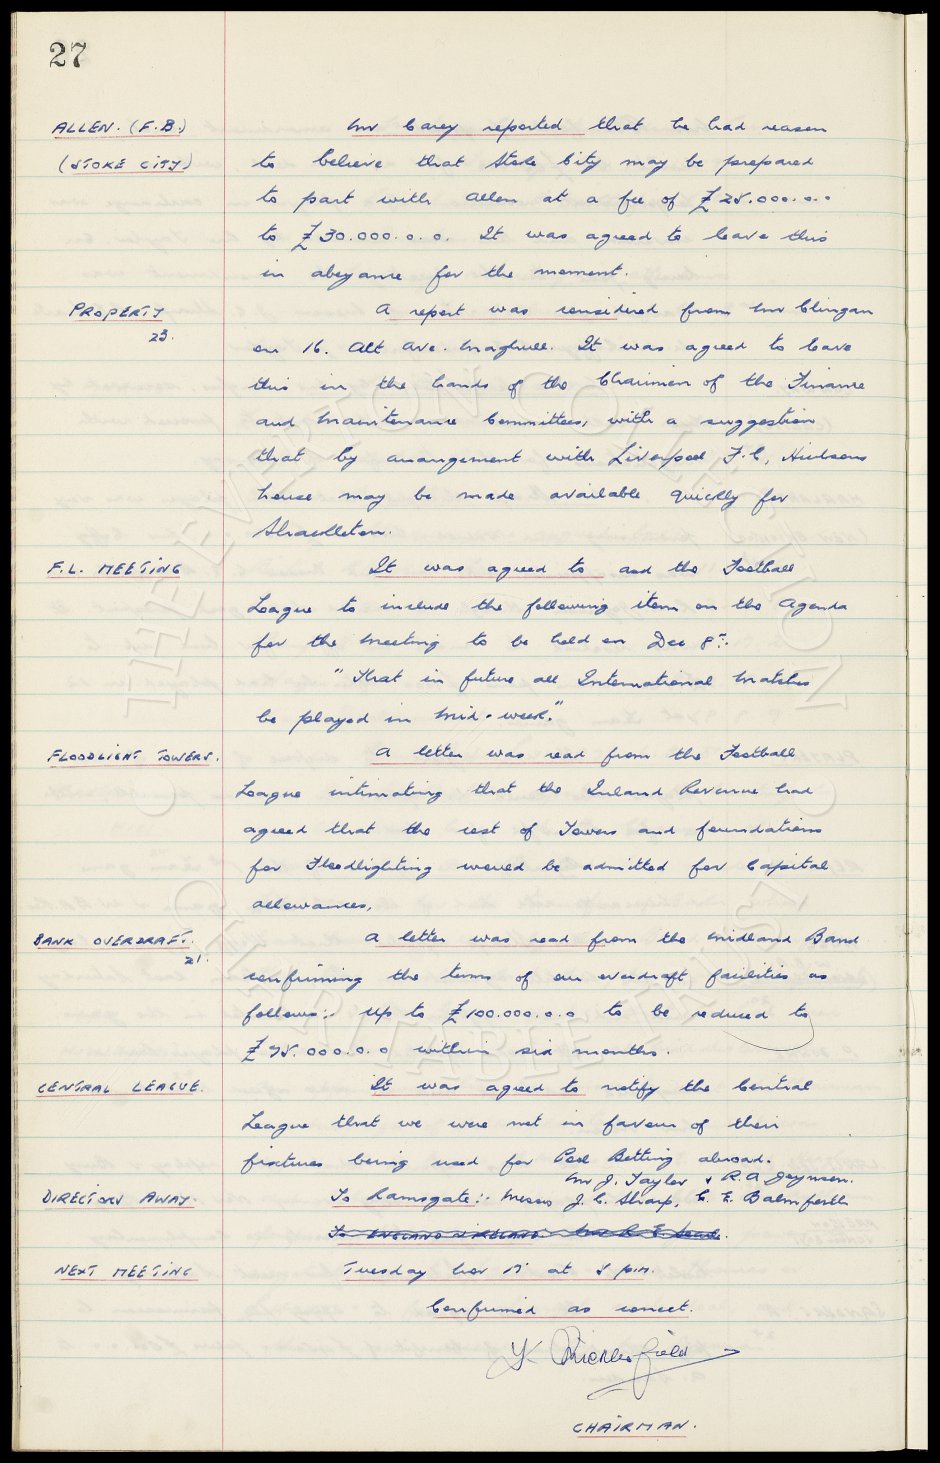 27
ALLEN. (F.B.) Mr Carey reported that he had reason
(STOKE CITY) to believe that Stoke City may be prepared
to part with Allen at a fee of £25.000.0.0
to £30.000.0.0. It was agreed to leave this
in abeyance for the moment.
PROPERTY A report was considered from Mr Clingan
23. on 16. Alt Ave. Maghull. It was agreed to leave
this in the hands of the Chairmen of the Finance
and Maintenance Committees, with a suggestion
that by arrangement with Liverpool F.C, Hudsons
house may be made available quickly for
Shackleton.
F.L. MEETING It was agreed to ask the Football
League to include the following item on the Agenda
for the Meeting to be held on Dec 8th:.
"That in future all International Matches
be played in Mid-week."
FLOODLIGHT TOWERS. A letter was read from the Football
League intimating that the Inland Revenue had
agreed that the cost of Towers and foundations
for Floodlighting would be admitted for Capital
allowances,
BANK OVERDRAFT. A letter was read from the Midland Bank
21. confirming the terms of our overdraft facilities as
follows:- Up to £100.000.0.0 to be reduced to
£75.000.0.0 within six months.
CENTRAL LEAGUE. It was agreed to notify the Central
League that we were not in favour of their
fixtures being used for Pool Betting abroad.
Mr J. Taylor & R.A. Joynson.
DIRECTORS AWAY. To Ramsgate:- Messrs J.C. Sharp, C.E. Balmforth
To ENGLAND v IRELAND. Mr R.E.
NEXT MEETING Tuesday Nov at 5 p.m.
Confirmed as correct.
CHAIRMAN.
THE EVERTON COLLECTION
CHARITABLE TRUST